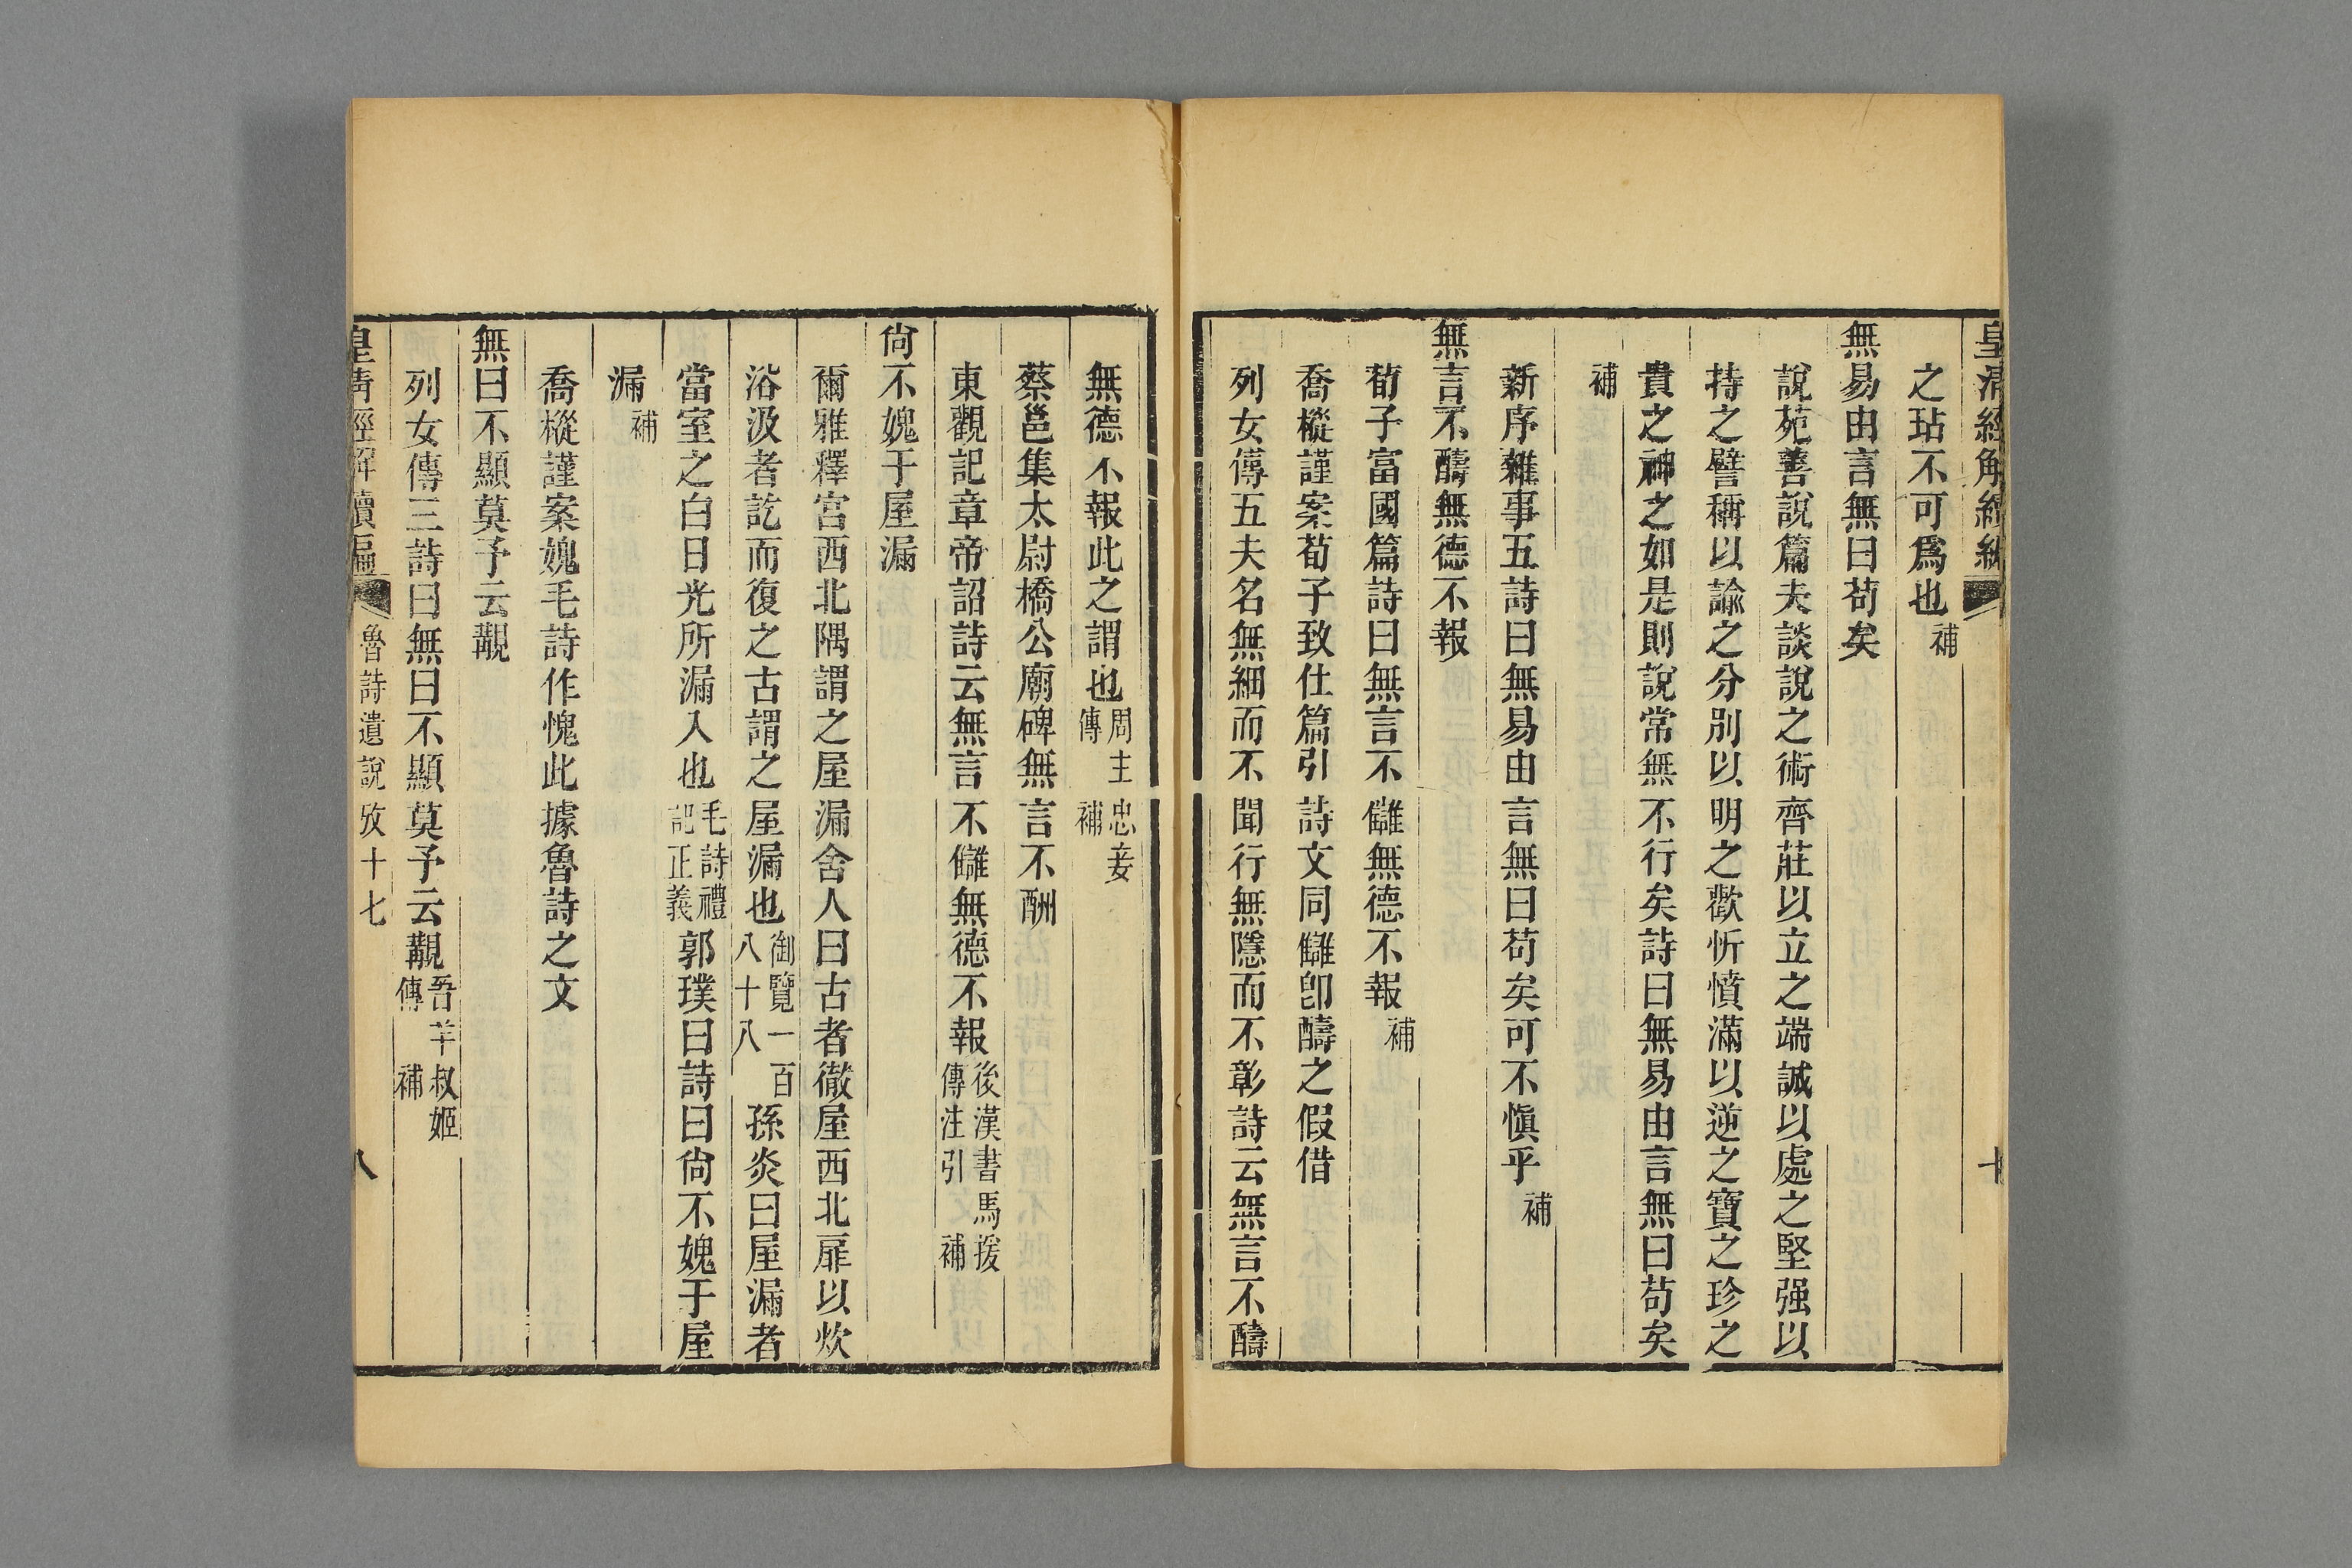 皇清經解續編
之玷不可爲也補
無易由言無曰苟矣
說苑善說篇夫談說之術齊莊以立之端誠以處之堅强以
持之譬稱以諭之分別以明之歡忻憤滿以逆之寶之珍之
貴之神之如是則說常無不行矣詩曰無易由言無曰苟矣
補
新序雜事五詩曰無易由言無曰苟矣可不愼乎補
無言不醻無德不報
荀子富國篇詩曰無言不讎無德不報補
喬樅謹案荀子致仕篇引詩文同讎卽醻之假借
列女傳五夫名無細而不聞行無隱而不彰詩云無言不醻
無德不報此之謂也周主忠妾傳補
蔡邕集太尉橋公廟碑無言不酬
東觀記章帝詔詩云無言不讎無德不報後漢書馬援傳注引補
尙不媿于屋漏
爾雅釋宮西北隅謂之屋漏舍人曰古者徹屋西北扉以炊
浴汲者訖而復之古謂之屋漏也御覽一百八十八孫炎曰屋漏者
當室之白日光所漏入也毛詩禮記正義郭璞曰詩曰尙不媿于屋
漏補
喬樅謹案媿毛詩作愧此據魯詩之文
無曰不顯莫予云覯
列女傳三詩曰無曰不顯莫予云覯晉羊叔姬傳補
皇清經解續編 魯詩遺說攷十七 八